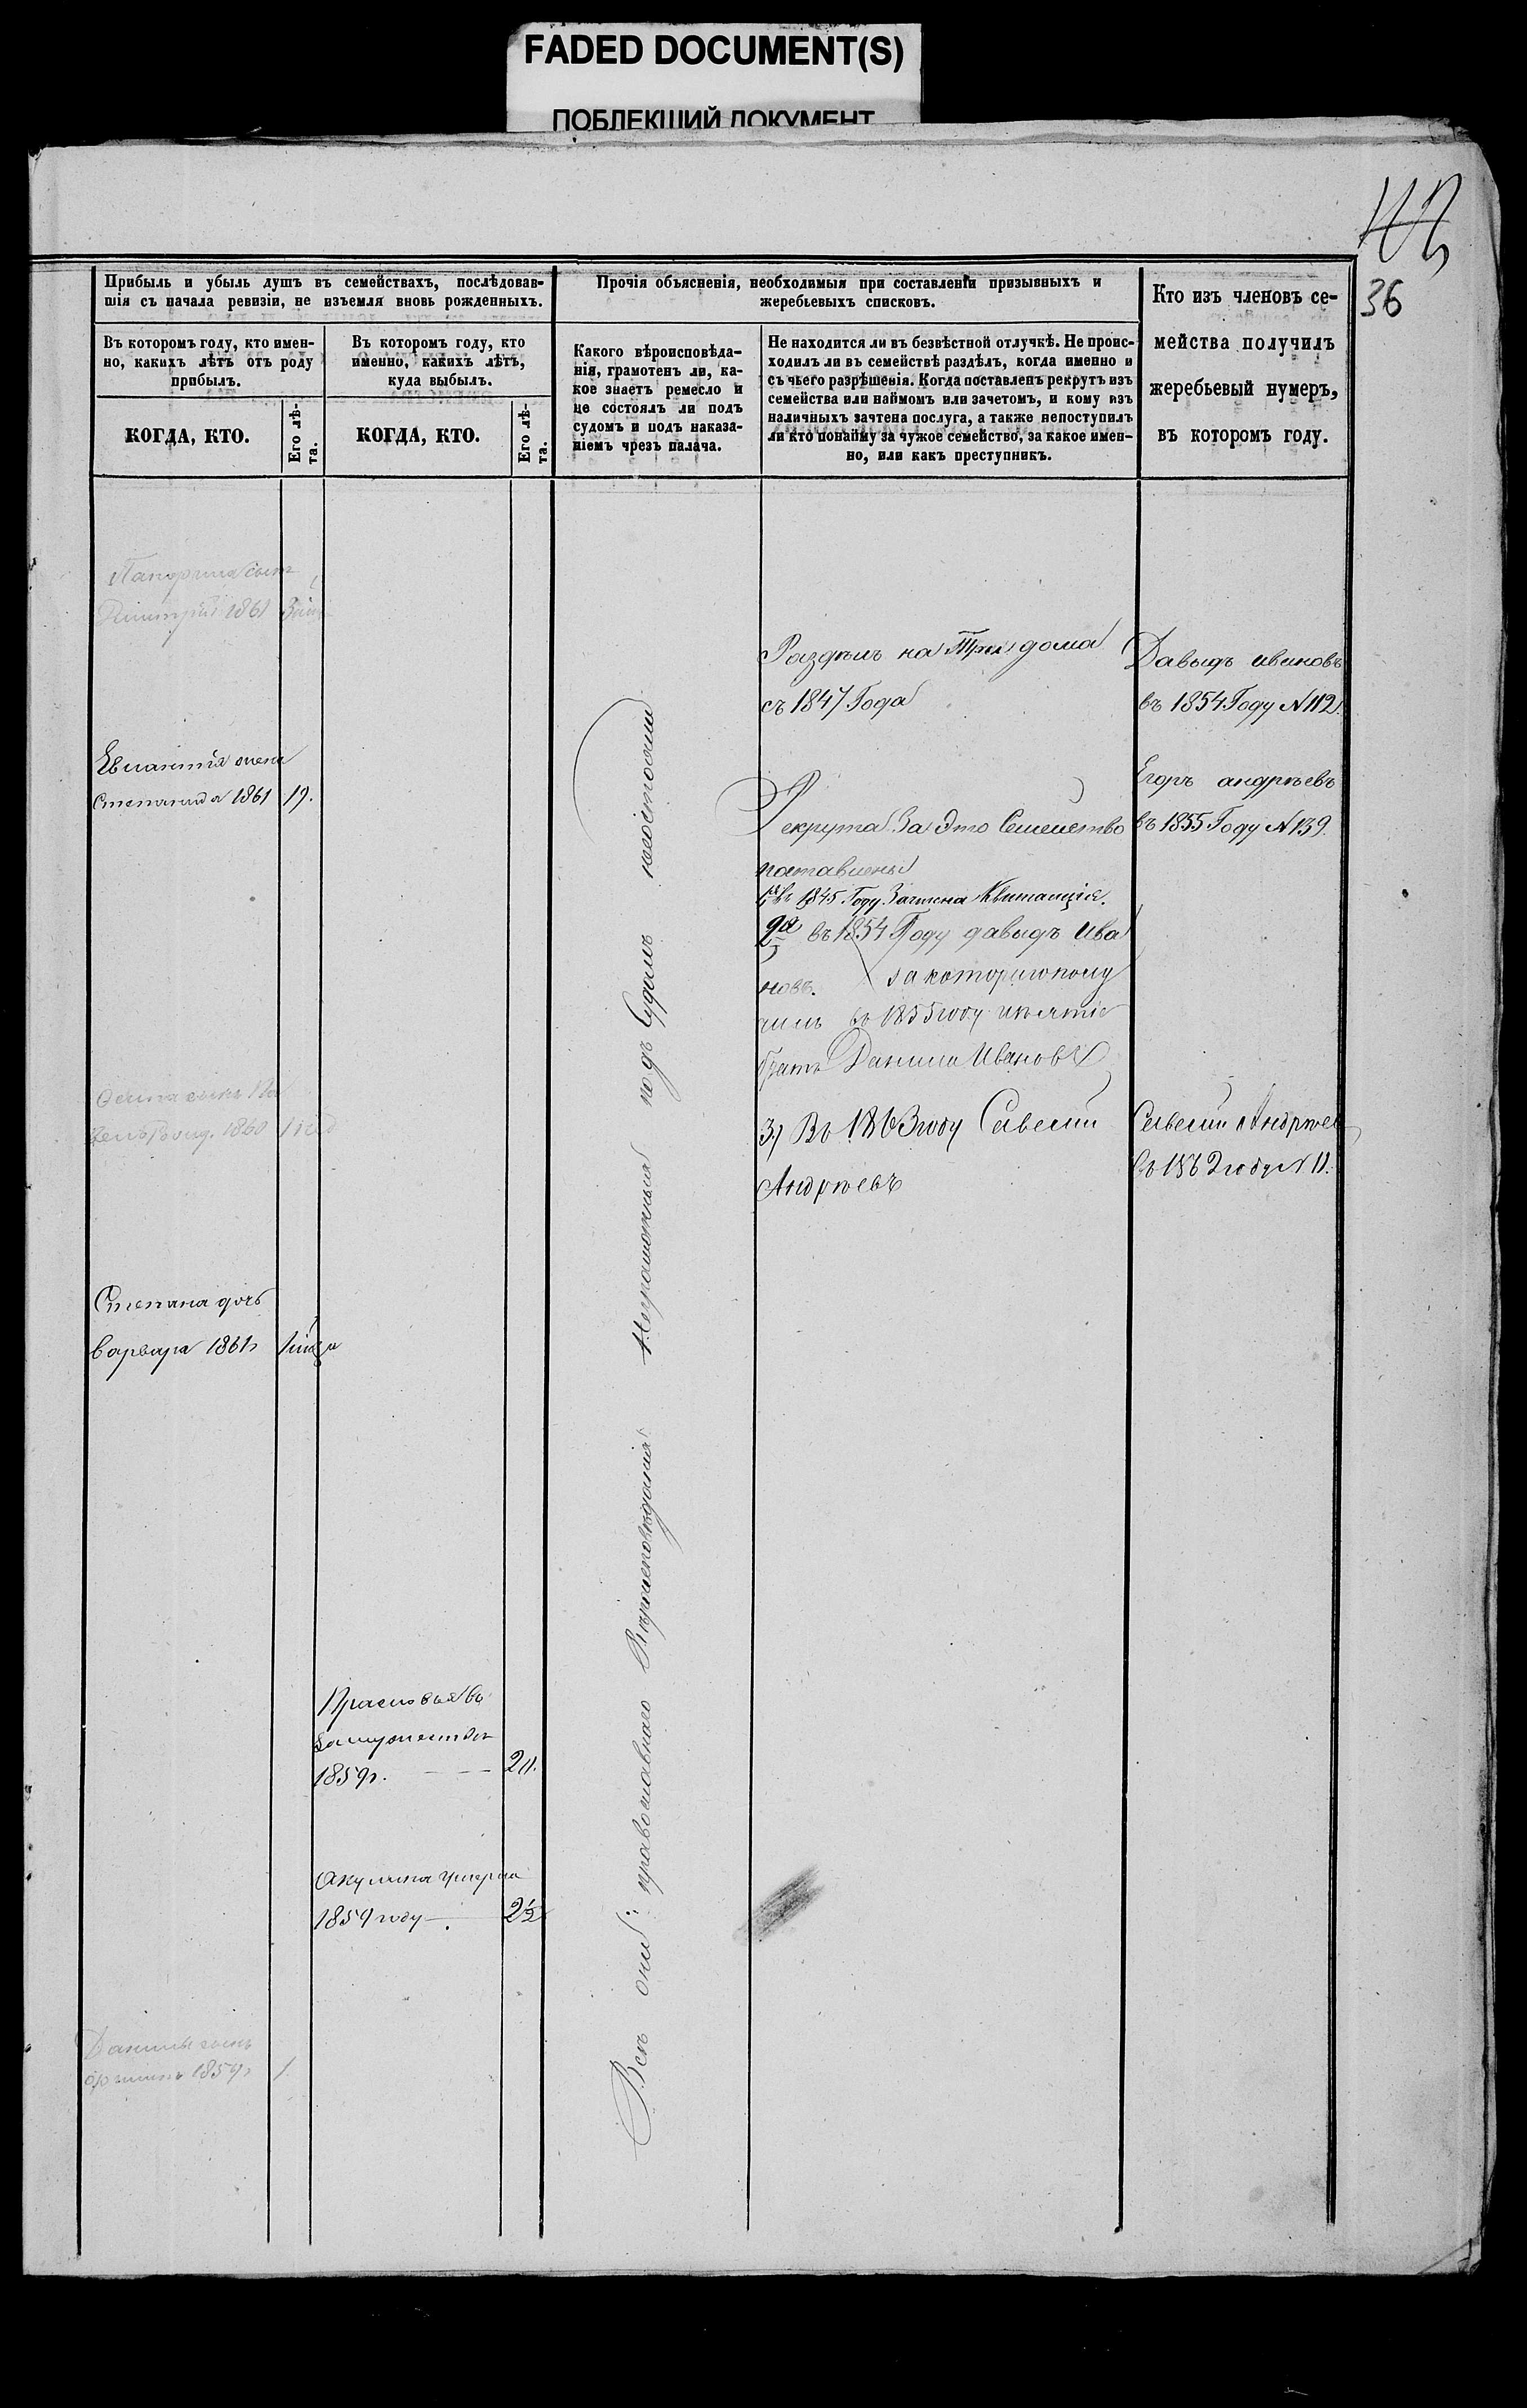 FADED DOCUMENT(S)
ПОБЛЕКШИЙ ДОКУМЕНТ
36
Прибыль и убыль душъ въ семействахъ, послѣдовав-
шія съ начала ревизіи, не изъемля вновь рожденныхъ.
Въ которомъ году, кто имен-
но, какихъ лѣтъ отъ роду
прибылъ.
КОГДА, КТО.
Его лѣ-
та.
Въ которомъ году, кто
именно, какихъ лѣтъ,
куда выбылъ.
КОГДА, КТО.
Его лѣ-
та.
Прочія объясненія, необходимыя при составленіи призывныхъ и
жеребьевыхъ списковъ.
Какого вѣроисповѣда-
нія, грамотенъ ли, ка-
кое знаетъ ремесло и
не состоялъ ли подъ
судомъ и подъ наказа-
ніемъ чрезъ палача.
Не находится ли въ безвѣстной отлучкѣ. Не проис-
ходилъ ли въ семействѣ раздѣлъ, когда именно и
съ чьего разрѣшенія. Когда поставленъ рекрутъ изъ
семейства или наймомъ или зачетомъ, и кому изъ
наличныхъ зачтена послуга, а также непоступилъ
ли кто понайму за чужое семейство, за какое имен-
но, или какъ преступникъ.
Кто изъ членовъ се-
мейства получилъ
жеребьевый нумеръ,
въ которомъ году.
сынъ
Димитрій 1861
жена
Степанида 1861 19.
1860
Степана дочь
варвара 1861г
Прасковья въ
замужество
1859г. 20.
Акулина умерла
1859 году 2½
Данилы сынъ
1859г 1
Всѣ они: православнаго Вѣроисповѣданія Неграмотныя подъ Судомъ несостояли
Раздѣлъ на Три дома
съ 1847 Года
Рекрута За Это Семейство
поставлены
въ 1845 Году Зачтена Квитанція.
2я въ 1854 Году давыдъ Ива
новъ. за которого полу
чилъ въ 1855 году
братъ Данила Ивановъ
3) Въ 1863 году Савелий
Андреевъ
Давыдъ ивановъ
въ 1854 Году N 112.
Егоръ андреевъ
въ 1855 Году N 139.
Савелий Андреев
въ 1862 году N 11.